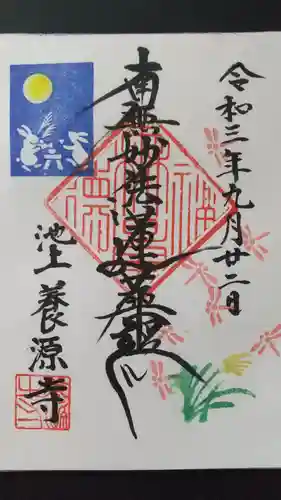 令和三年九月廿二日
南無妙法蓮華経
池上 養源寺